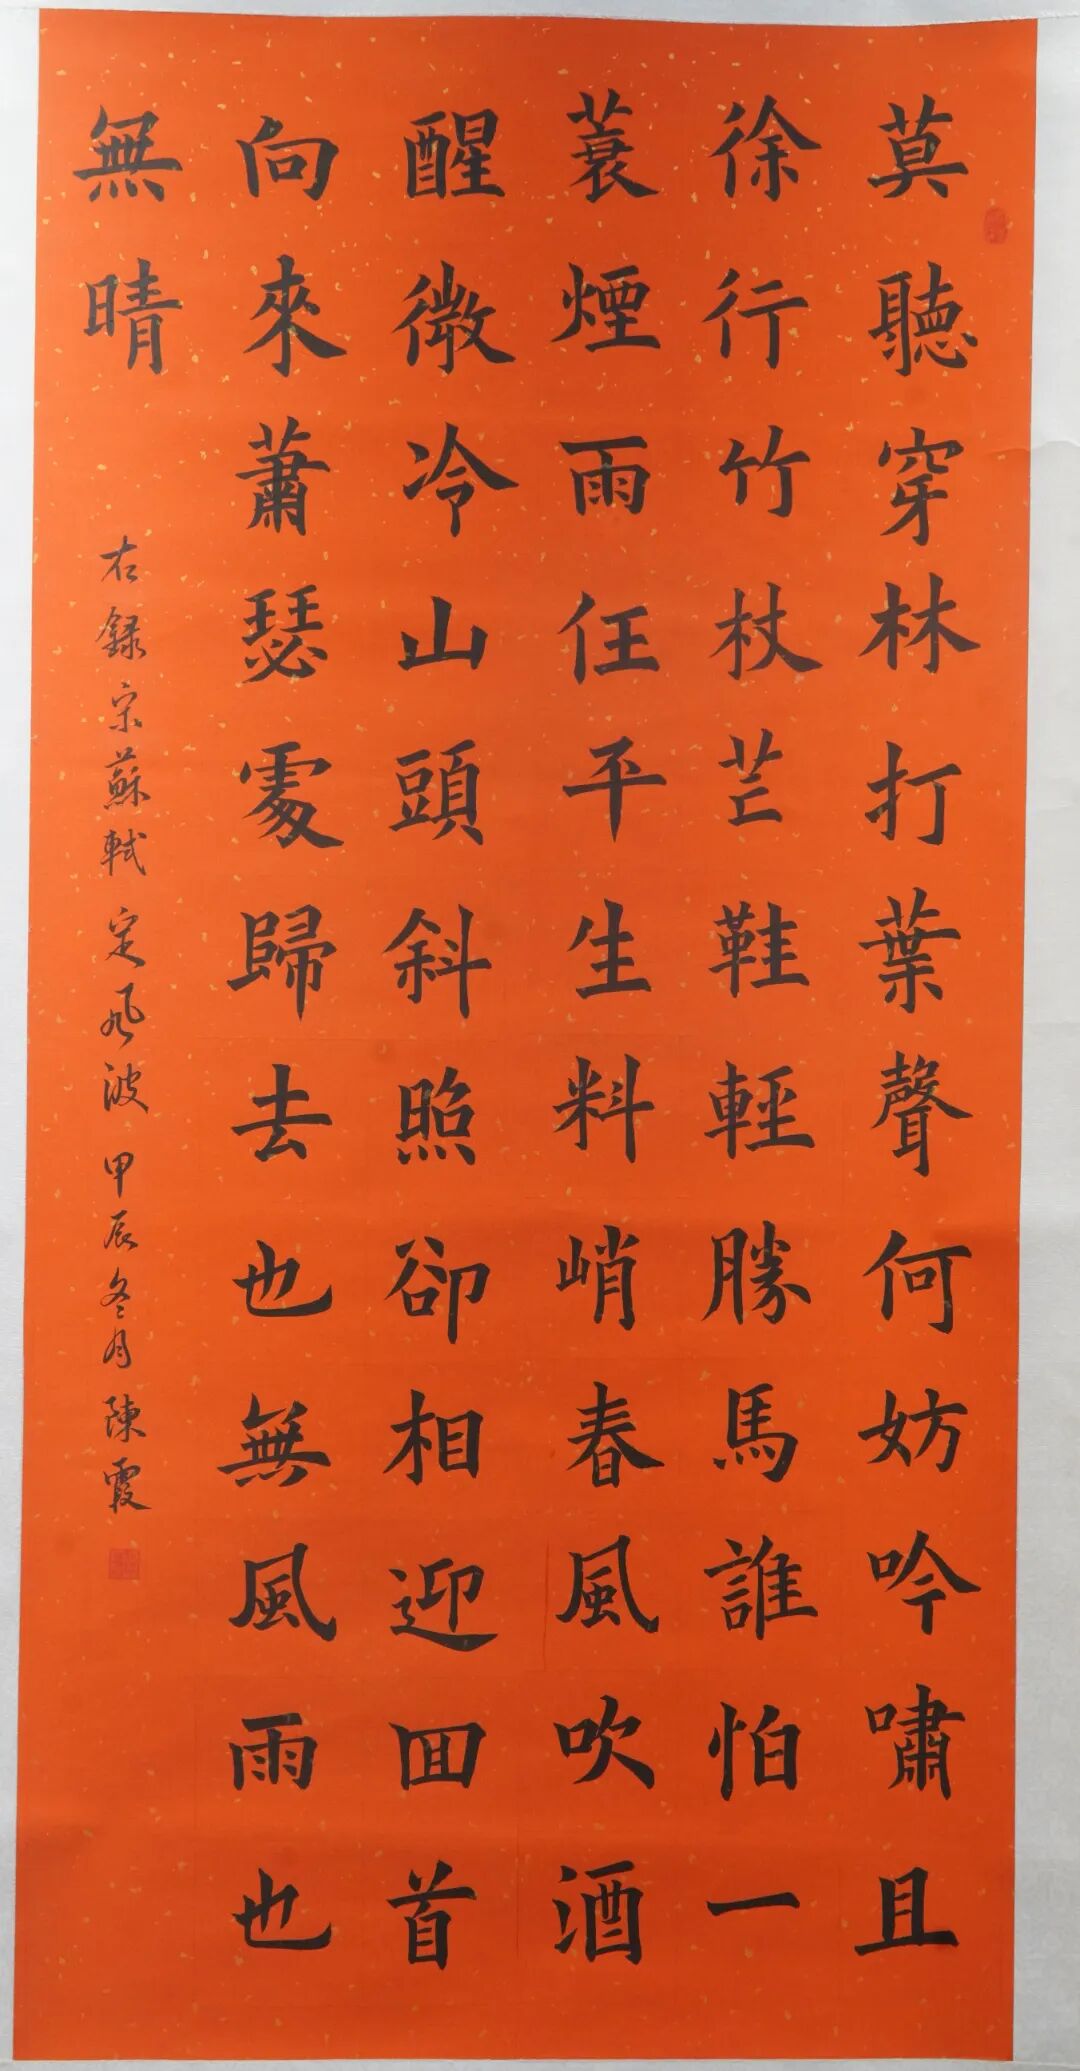 莫聽穿林打葉聲何妨吟嘯且
徐行竹杖芒鞋輕勝馬誰怕一
蓑煙雨任平生料峭春風吹酒
醒微冷山頭斜照卻相迎回首
向來蕭瑟處歸去也無風雨也
無晴
右録宋蘇軾定風波甲辰冬月陳霞